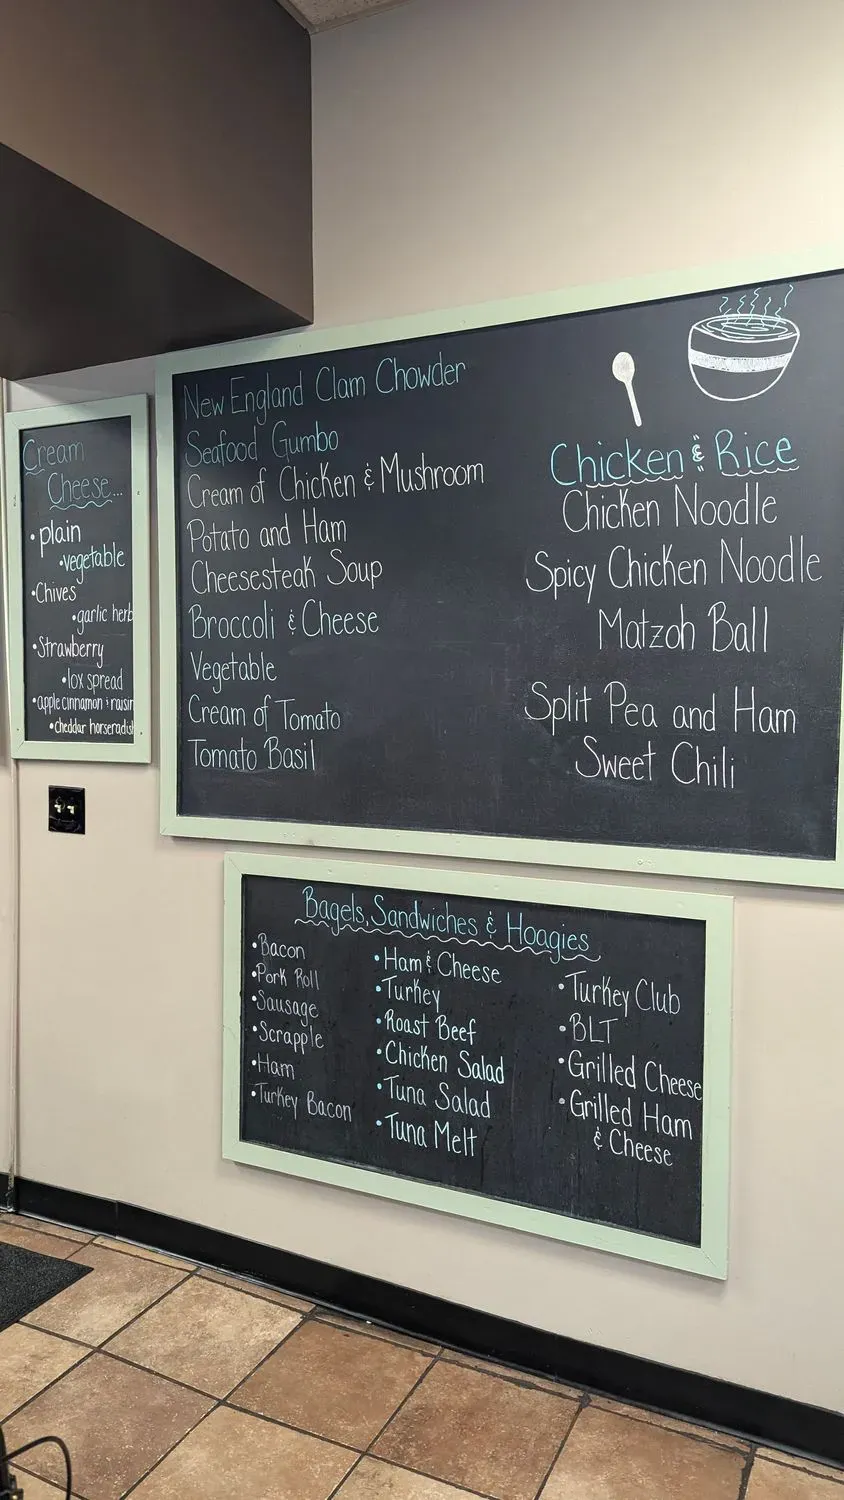 Cream
Cheese...
• plain
• vegetable
• Chives
• garlic herb
• Strawberry
• lox spread
• apple cinnamon & raisin
• cheddar horseradish
New England Clam Chowder
Seafood Gumbo
Cream of Chicken & Mushroom
Potato and Ham
Cheesesteak Soup
Broccoli & Cheese
Vegetable
Cream of Tomato
Tomato Basil
Chicken & Rice
Chicken Noodle
Spicy Chicken Noodle
Matzoh Ball
Split Pea and Ham
Sweet Chili
Bagels, Sandwiches & Hoagies
• Bacon
• Pork Roll
• Sausage
• Scrapple
• Ham
• Turkey Bacon
• Ham & Cheese
• Turkey
• Roast Beef
• Chicken Salad
• Tuna Salad
• Tuna Melt
• Turkey Club
• BLT
• Grilled Cheese
• Grilled Ham
& Cheese